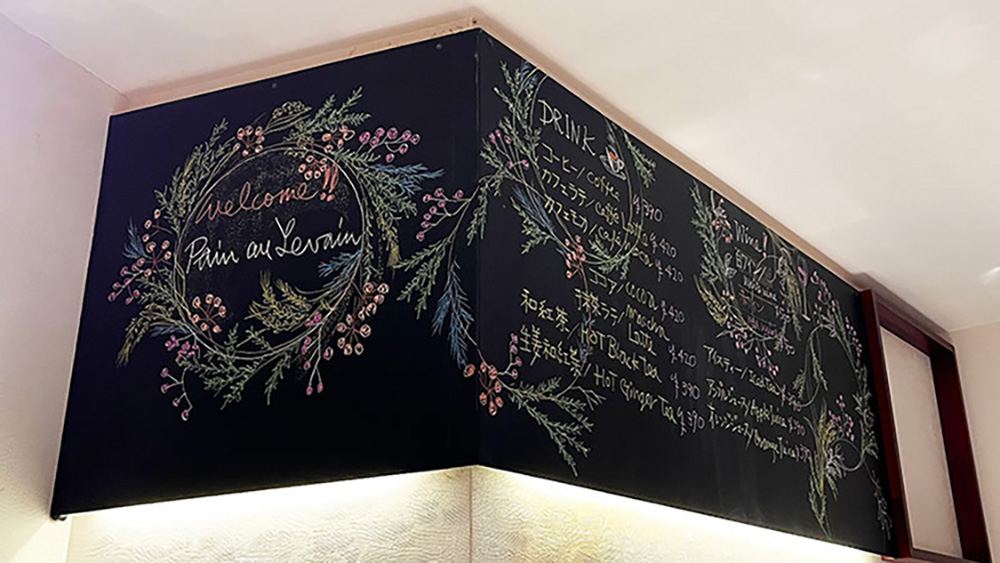 welcome!!
Pain au Levain
DRINK
コーヒー/coffee ¥390
カフェラテ/caffé Latte ¥420
カフェモカ/café moca ¥420
ココア/cocoa ¥420
抹茶ラテ/Matcha Latte ¥420
和紅茶/Hot Black Tea ¥390
生姜和紅茶/Hot Ginger Tea ¥390
Wine!
白ワイン
アイスティー/Iced Tea
アップルジュース/Apple Juice ¥390
オレンジジュース/Orange Juice